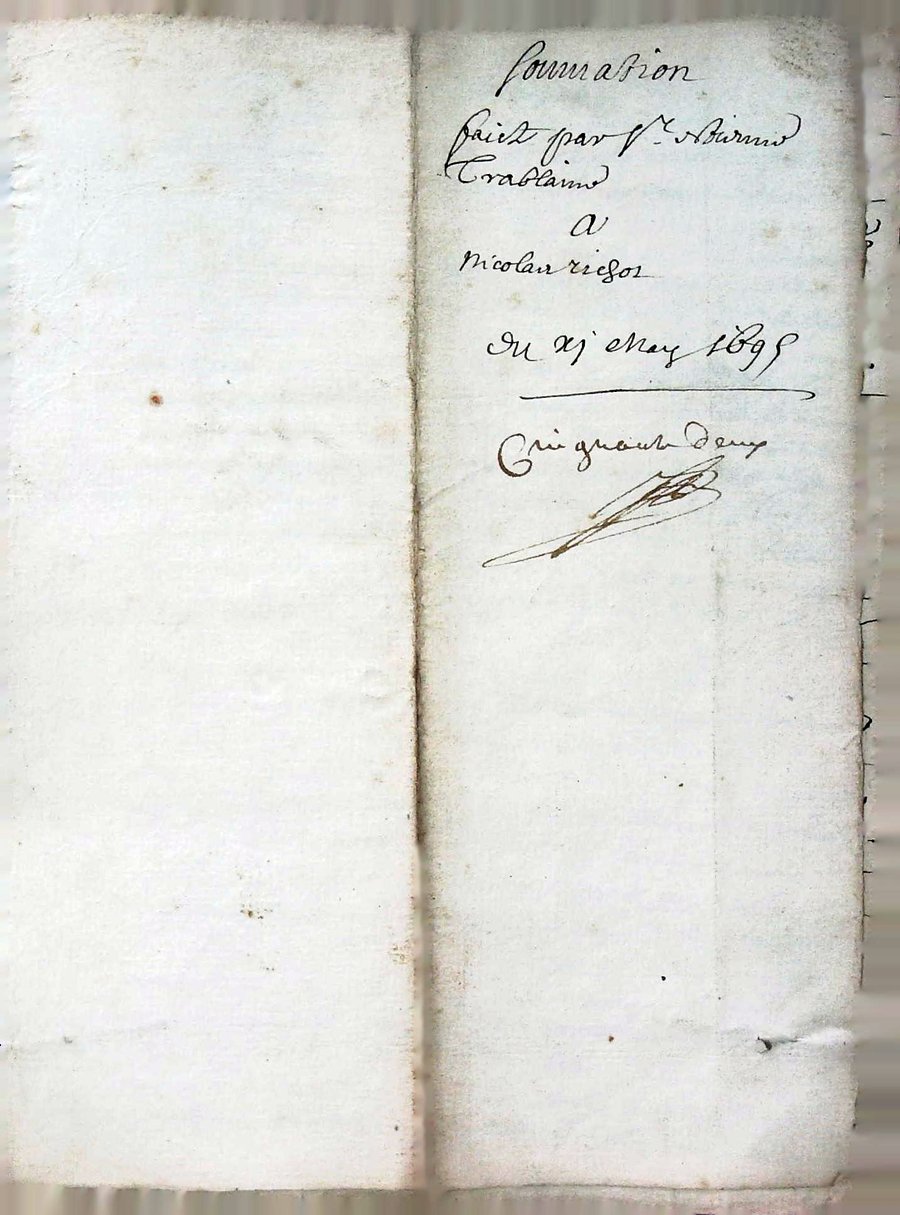 Sommation
faict par Sr. Estienne
Trablaine
A
Nicolas richot
du xj May 1695
Cinquante deux